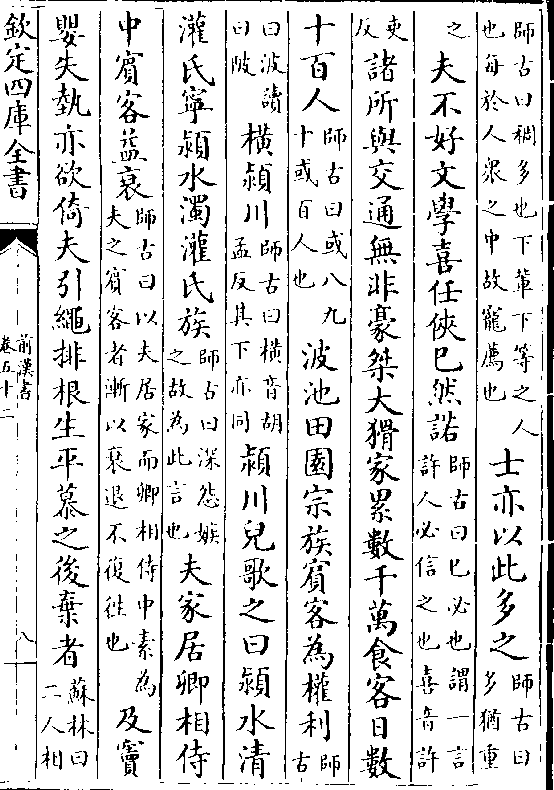 師古曰稠多也下輩下等之人
也每於人衆之中故寵薦也
士亦以此多之
師古曰
多猶重
之
夫不好文學喜任俠已然諾
師古曰已必也謂一言
許人必信之也喜音許
吏
反
諸所與交通無非豪桀大猾家累數千萬食客日數
十百人
師古曰或八九
十或百人也
波池田園宗族賓客為權利
師
古
曰波讀
曰陂
橫潁川
師古曰橫音胡
孟反其下亦同
潁川兒歌之曰潁水清
灌氏寧潁水濁灌氏族
師古曰深怨嫉
之故為此言也
夫家居卿相侍
中賓客益衰
師古曰以夫居家而卿相侍中素為
夫之賓客者漸以衰退不復往也
及竇
嬰失埶亦欲倚夫引繩排根生平慕之後棄者
蘇林曰
二人相
欽定四庫全書
前漢書
卷五十二
八